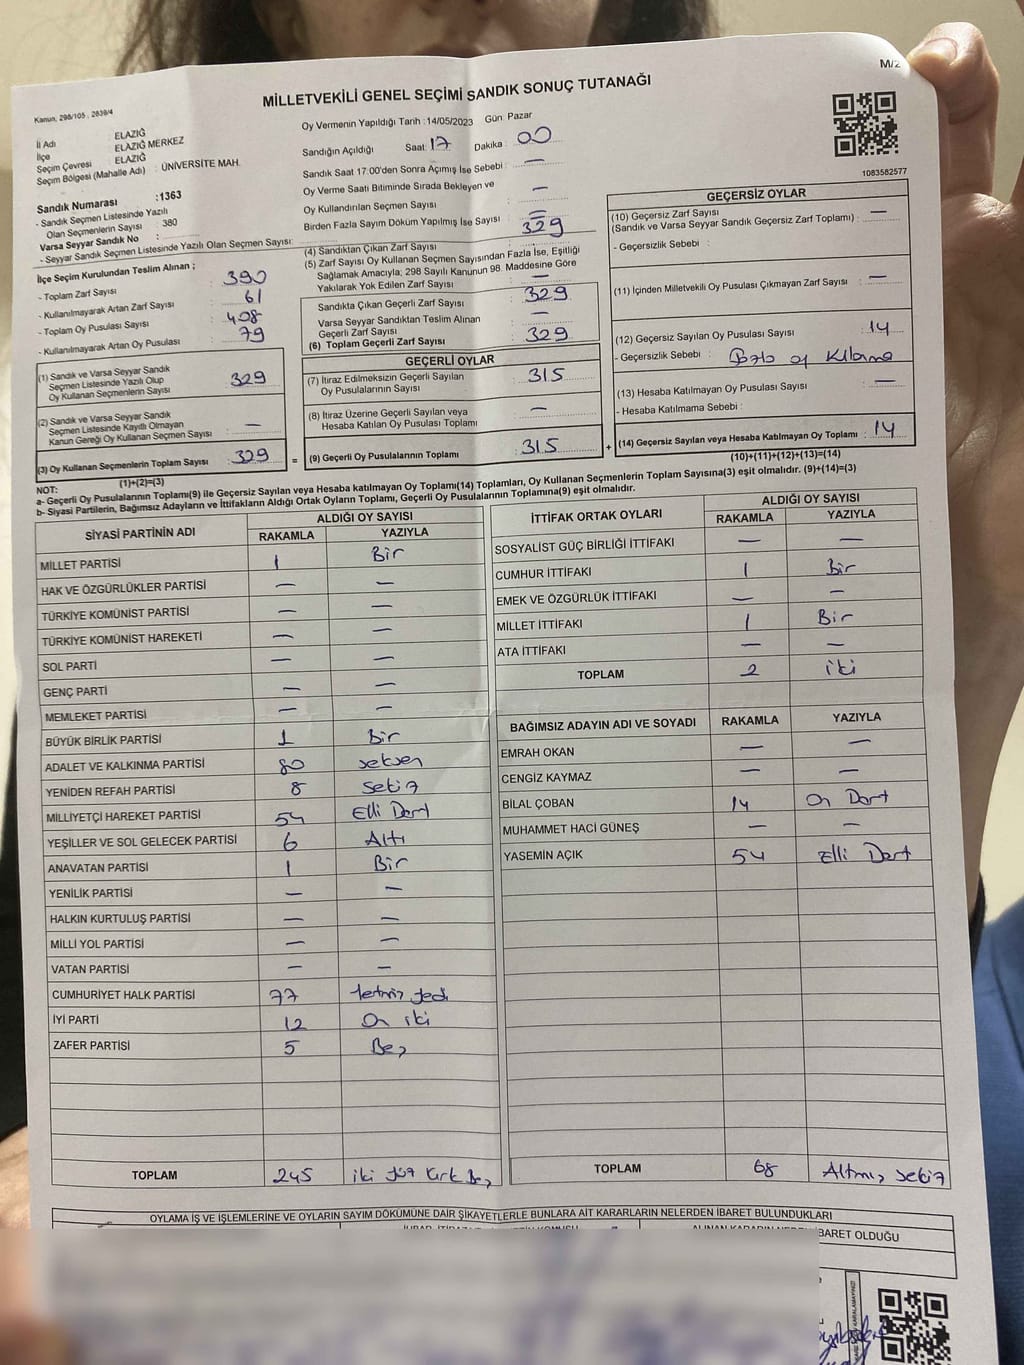 M/2
MİLLETVEKİLİ GENEL SEÇİMİ SANDIK SONUÇ TUTANAĞI
Kanun, 298/105 , 2839/4
İl Adı : ELAZIĞ
İlçe : ELAZIĞ MERKEZ
Seçim Çevresi : ELAZIĞ
Seçim Bölgesi (Mahalle Adı) : ÜNİVERSİTE MAH.
Sandık Numarası :1363
- Sandık Seçmen Listesinde Yazılı
Olan Seçmenlerin Sayısı : 380
Varsa Seyyar Sandık No :
- Seyyar Sandık Seçmen Listesinde Yazılı Olan Seçmen Sayısı:
İlçe Seçim Kurulundan Teslim Alınan ;
- Toplam Zarf Sayısı : 390
- Kullanılmayarak Artan Zarf Sayısı : 61
- Toplam Oy Pusulası Sayısı : 408
- Kullanılmayarak Artan Oy Pusulası : 79
(1) Sandık ve Varsa Seyyar Sandık
Seçmen Listesinde Yazılı Olup
Oy Kullanan Seçmen Sayısı : 329
(2) Sandık ve Varsa Seyyar Sandık
Seçmen Listesinde Kayıtlı Olmayan
Kanun Gereği Oy Kullanan Seçmen Sayısı : —
(3) Oy Kullanan Seçmenlerin Toplam Sayısı : 329
(1)+(2)=(3)
Oy Vermenin Yapıldığı Tarih :14/05/2023 Gün: Pazar
Sandığın Açıldığı Saat: 17 Dakika : 00
Sandık Saat 17.00'den Sonra Açımış İse Sebebi : —
Oy Verme Saati Bitiminde Sırada Bekleyen ve
Oy Kullandırılan Seçmen Sayısı : —
Birden Fazla Sayım Döküm Yapılmış İse Sayısı : —
(4) Sandıktan Çıkan Zarf Sayısı : 329
(5) Zarf Sayısı Oy Kullanan Seçmen Sayısından Fazla İse, Eşitliği
Sağlamak Amacıyla; 298 Sayılı Kanunun 98. Maddesine Göre
Yakılarak Yok Edilen Zarf Sayısı : —
Sandıkta Çıkan Geçerli Zarf Sayısı : 329
Varsa Seyyar Sandıktan Teslim Alınan
Geçerli Zarf Sayısı : —
(6) Toplam Geçerli Zarf Sayısı : 329
GEÇERLİ OYLAR
(7) İtiraz Edilmeksizin Geçerli Sayılan
Oy Pusulalarının Sayısı : 315
(8) İtiraz Üzerine Geçerli Sayılan veya
Hesaba Katılan Oy Pusulası Toplamı : —
= (9) Geçerli Oy Pusulalarının Toplamı : 315 +
1083582577
GEÇERSİZ OYLAR
(10) Geçersiz Zarf Sayısı
(Sandık ve Varsa Seyyar Sandık Geçersiz Zarf Toplamı) : —
- Geçersizlik Sebebi :
(11) İçinden Milletvekili Oy Pusulası Çıkmayan Zarf Sayısı : —
(12) Geçersiz Sayılan Oy Pusulası Sayısı : 14
- Geçersizlik Sebebi :
(13) Hesaba Katılmayan Oy Pusulası Sayısı : —
- Hesaba Katılmama Sebebi :
(14) Geçersiz Sayılan veya Hesaba Katılmayan Oy Toplamı : 14
(10)+(11)+(12)+(13)=(14)
NOT:
a- Geçerli Oy Pusulalarının Toplamı(9) ile Geçersiz Sayılan veya Hesaba katılmayan Oy Toplamı(14) Toplamları, Oy Kullanan Seçmenlerin Toplam Sayısına(3) eşit olmalıdır. (9)+(14)=(3)
b- Siyasi Partilerin, Bağımsız Adayların ve İttifakların Aldığı Ortak Oyların Toplamı, Geçerli Oy Pusulalarının Toplamına(9) eşit olmalıdır.
SİYASİ PARTİNİN ADI ALDIĞI OY SAYISI
RAKAMLA YAZIYLA
MİLLET PARTİSİ 1 Bir
HAK VE ÖZGÜRLÜKLER PARTİSİ — —
TÜRKİYE KOMÜNİST PARTİSİ — —
TÜRKİYE KOMÜNİST HAREKETİ — —
SOL PARTİ — —
GENÇ PARTİ — —
MEMLEKET PARTİSİ — —
BÜYÜK BİRLİK PARTİSİ 1 Bir
ADALET VE KALKINMA PARTİSİ 80 seksen
YENİDEN REFAH PARTİSİ 8 sekiz
MİLLİYETÇİ HAREKET PARTİSİ 54 Elli Dört
YEŞİLLER VE SOL GELECEK PARTİSİ 6 Altı
ANAVATAN PARTİSİ 1 Bir
YENİLİK PARTİSİ — —
HALKIN KURTULUŞ PARTİSİ — —
MİLLİ YOL PARTİSİ — —
VATAN PARTİSİ — —
CUMHURİYET HALK PARTİSİ 77 Yetmiş Yedi
İYİ PARTİ 12 On iki
ZAFER PARTİSİ 5 Beş
TOPLAM 245 iki yüz Kırk Beş
İTTİFAK ORTAK OYLARI ALDIĞI OY SAYISI
RAKAMLA YAZIYLA
SOSYALİST GÜÇ BİRLİĞİ İTTİFAKI — —
CUMHUR İTTİFAKI 1 Bir
EMEK VE ÖZGÜRLÜK İTTİFAKI — —
MİLLET İTTİFAKI 1 Bir
ATA İTTİFAKI — —
TOPLAM 2 iki
BAĞIMSIZ ADAYIN ADI VE SOYADI RAKAMLA YAZIYLA
EMRAH OKAN — —
CENGİZ KAYMAZ — —
BİLAL ÇOBAN 14 On Dört
MUHAMMET HACİ GÜNEŞ — —
YASEMİN AÇIK 54 Elli Dört
TOPLAM 68 Altmış sekiz
OYLAMA İŞ VE İŞLEMLERİNE VE OYLARIN SAYIM DÖKÜMÜNE DAİR ŞİKAYETLERLE BUNLARA AİT KARARLARIN NELERDEN İBARET BULUNDUKLARI
İBARET OLDUĞU